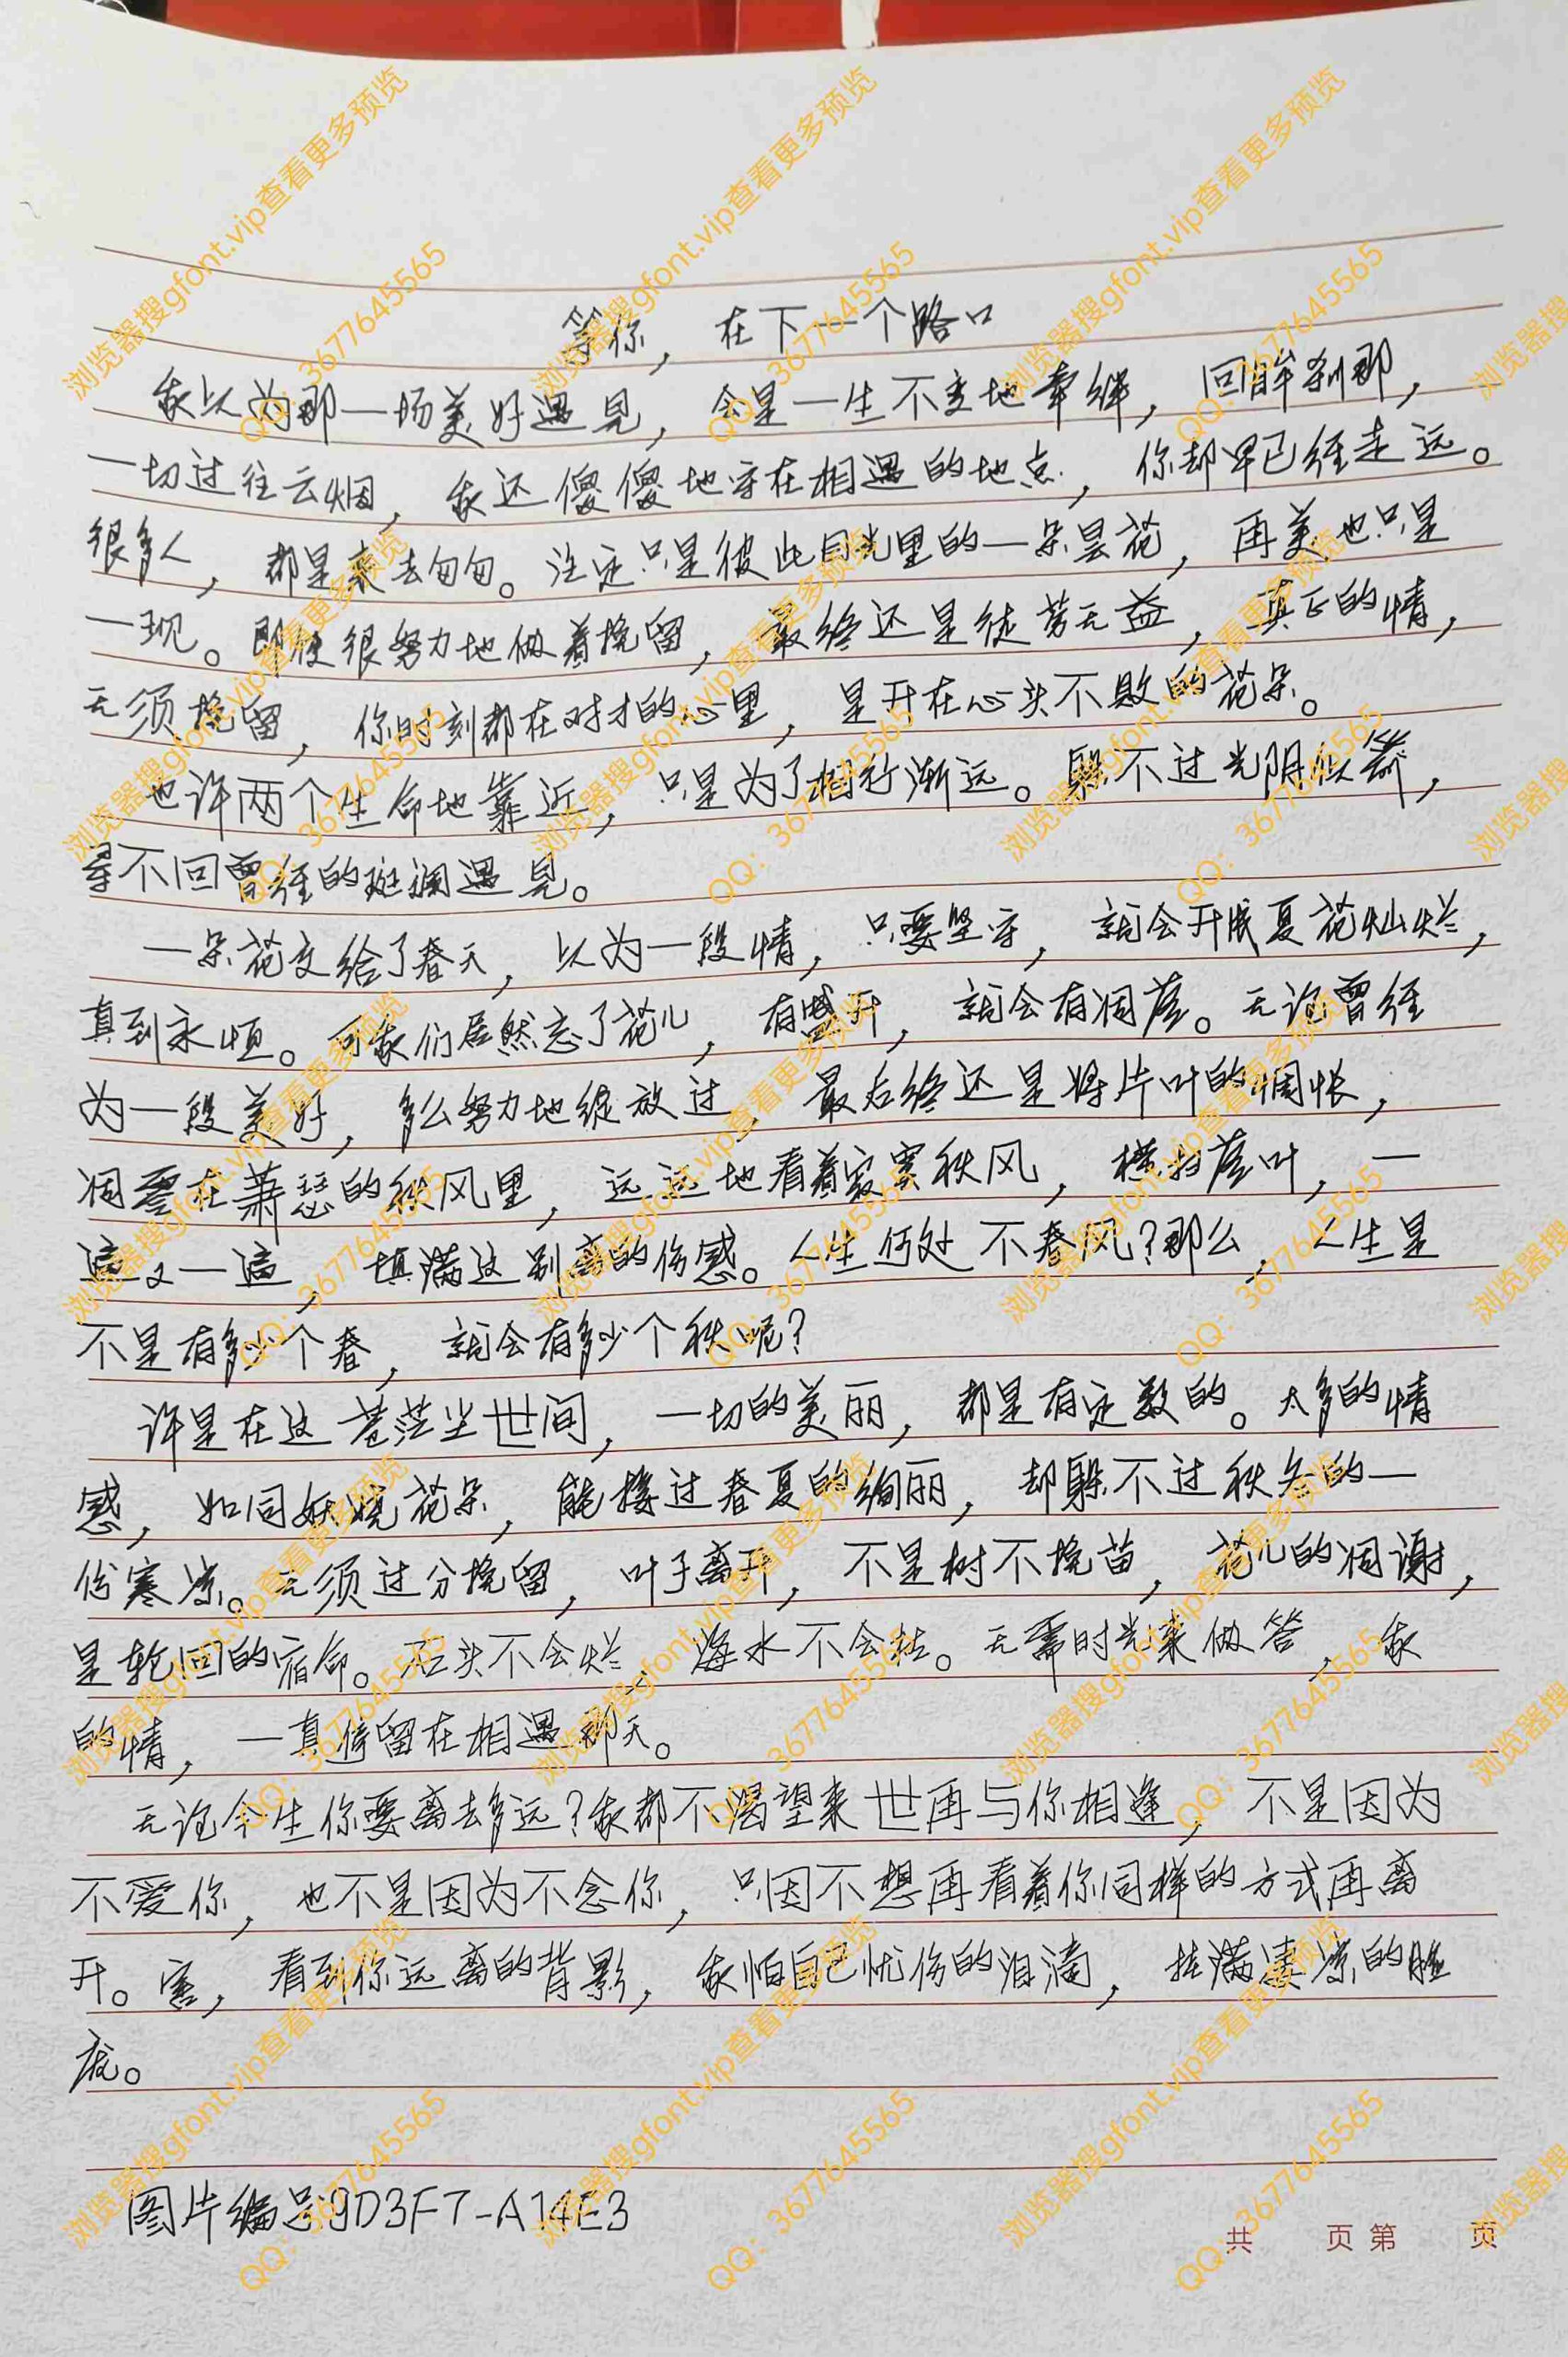 等你，在下一个路口
我以为那一场美好遇见，会是一生不变地牵绊，回眸刹那，
一切过往云烟，我还傻傻地守在相遇的地点，你却早已经走远。
很多人，都是来去匆匆。注定只是彼此目光里的一朵昙花，再美也只是
一现。即使很努力地做着挽留，最终还是徒劳无益，真正的情，
无须挽留，你时刻都在对才的心里，是开在心头不败的花朵。
也许两个生命地靠近，只是为了相行渐远。躲不过光阴似箭，
寻不回曾经的斑斓遇见。
一朵花交给了春天，以为一段情，只要坚守，就会开成夏花灿烂，
真到永恒。可我们居然忘了花儿，有盛开，就会有凋落。无论曾经
为一段美好，多么努力地绽放过，最后终还是将片叶的惆怅，
凋零在萧瑟的秋风里，远远地看着寂寞秋风，横扫落叶，一
遍又一遍，填满这别离的伤感。人生何处不春风？那么，人生是
不是有多少个春，就会有多少个秋呢？
许是在这苍茫尘世间，一切的美丽，都是有定数的。太多的情
感，如同妖娆花朵，能接过春夏的绚丽，却躲不过秋冬的一
伤寒凉。无须过分挽留，叶子离开，不是树不挽苗，花儿的凋谢，
是轮回的宿命。石头不会烂，海水不会枯。无需时光来做答，我
的情，一真停留在相遇那天。
无论今生你要离去多远？我都不渴望来世再与你相逢，不是因为
不爱你，也不是因为不念你，只因不想再看着你同样的方式再离
开。害，看到你远离的背影，我怕自己忧伤的泪滴，挂满凄凉的脸
庞。
图片编号9D3F7-A14E3
共 页 第 页
浏览器搜gfont.vip查看更多预览
QQ：3677645565